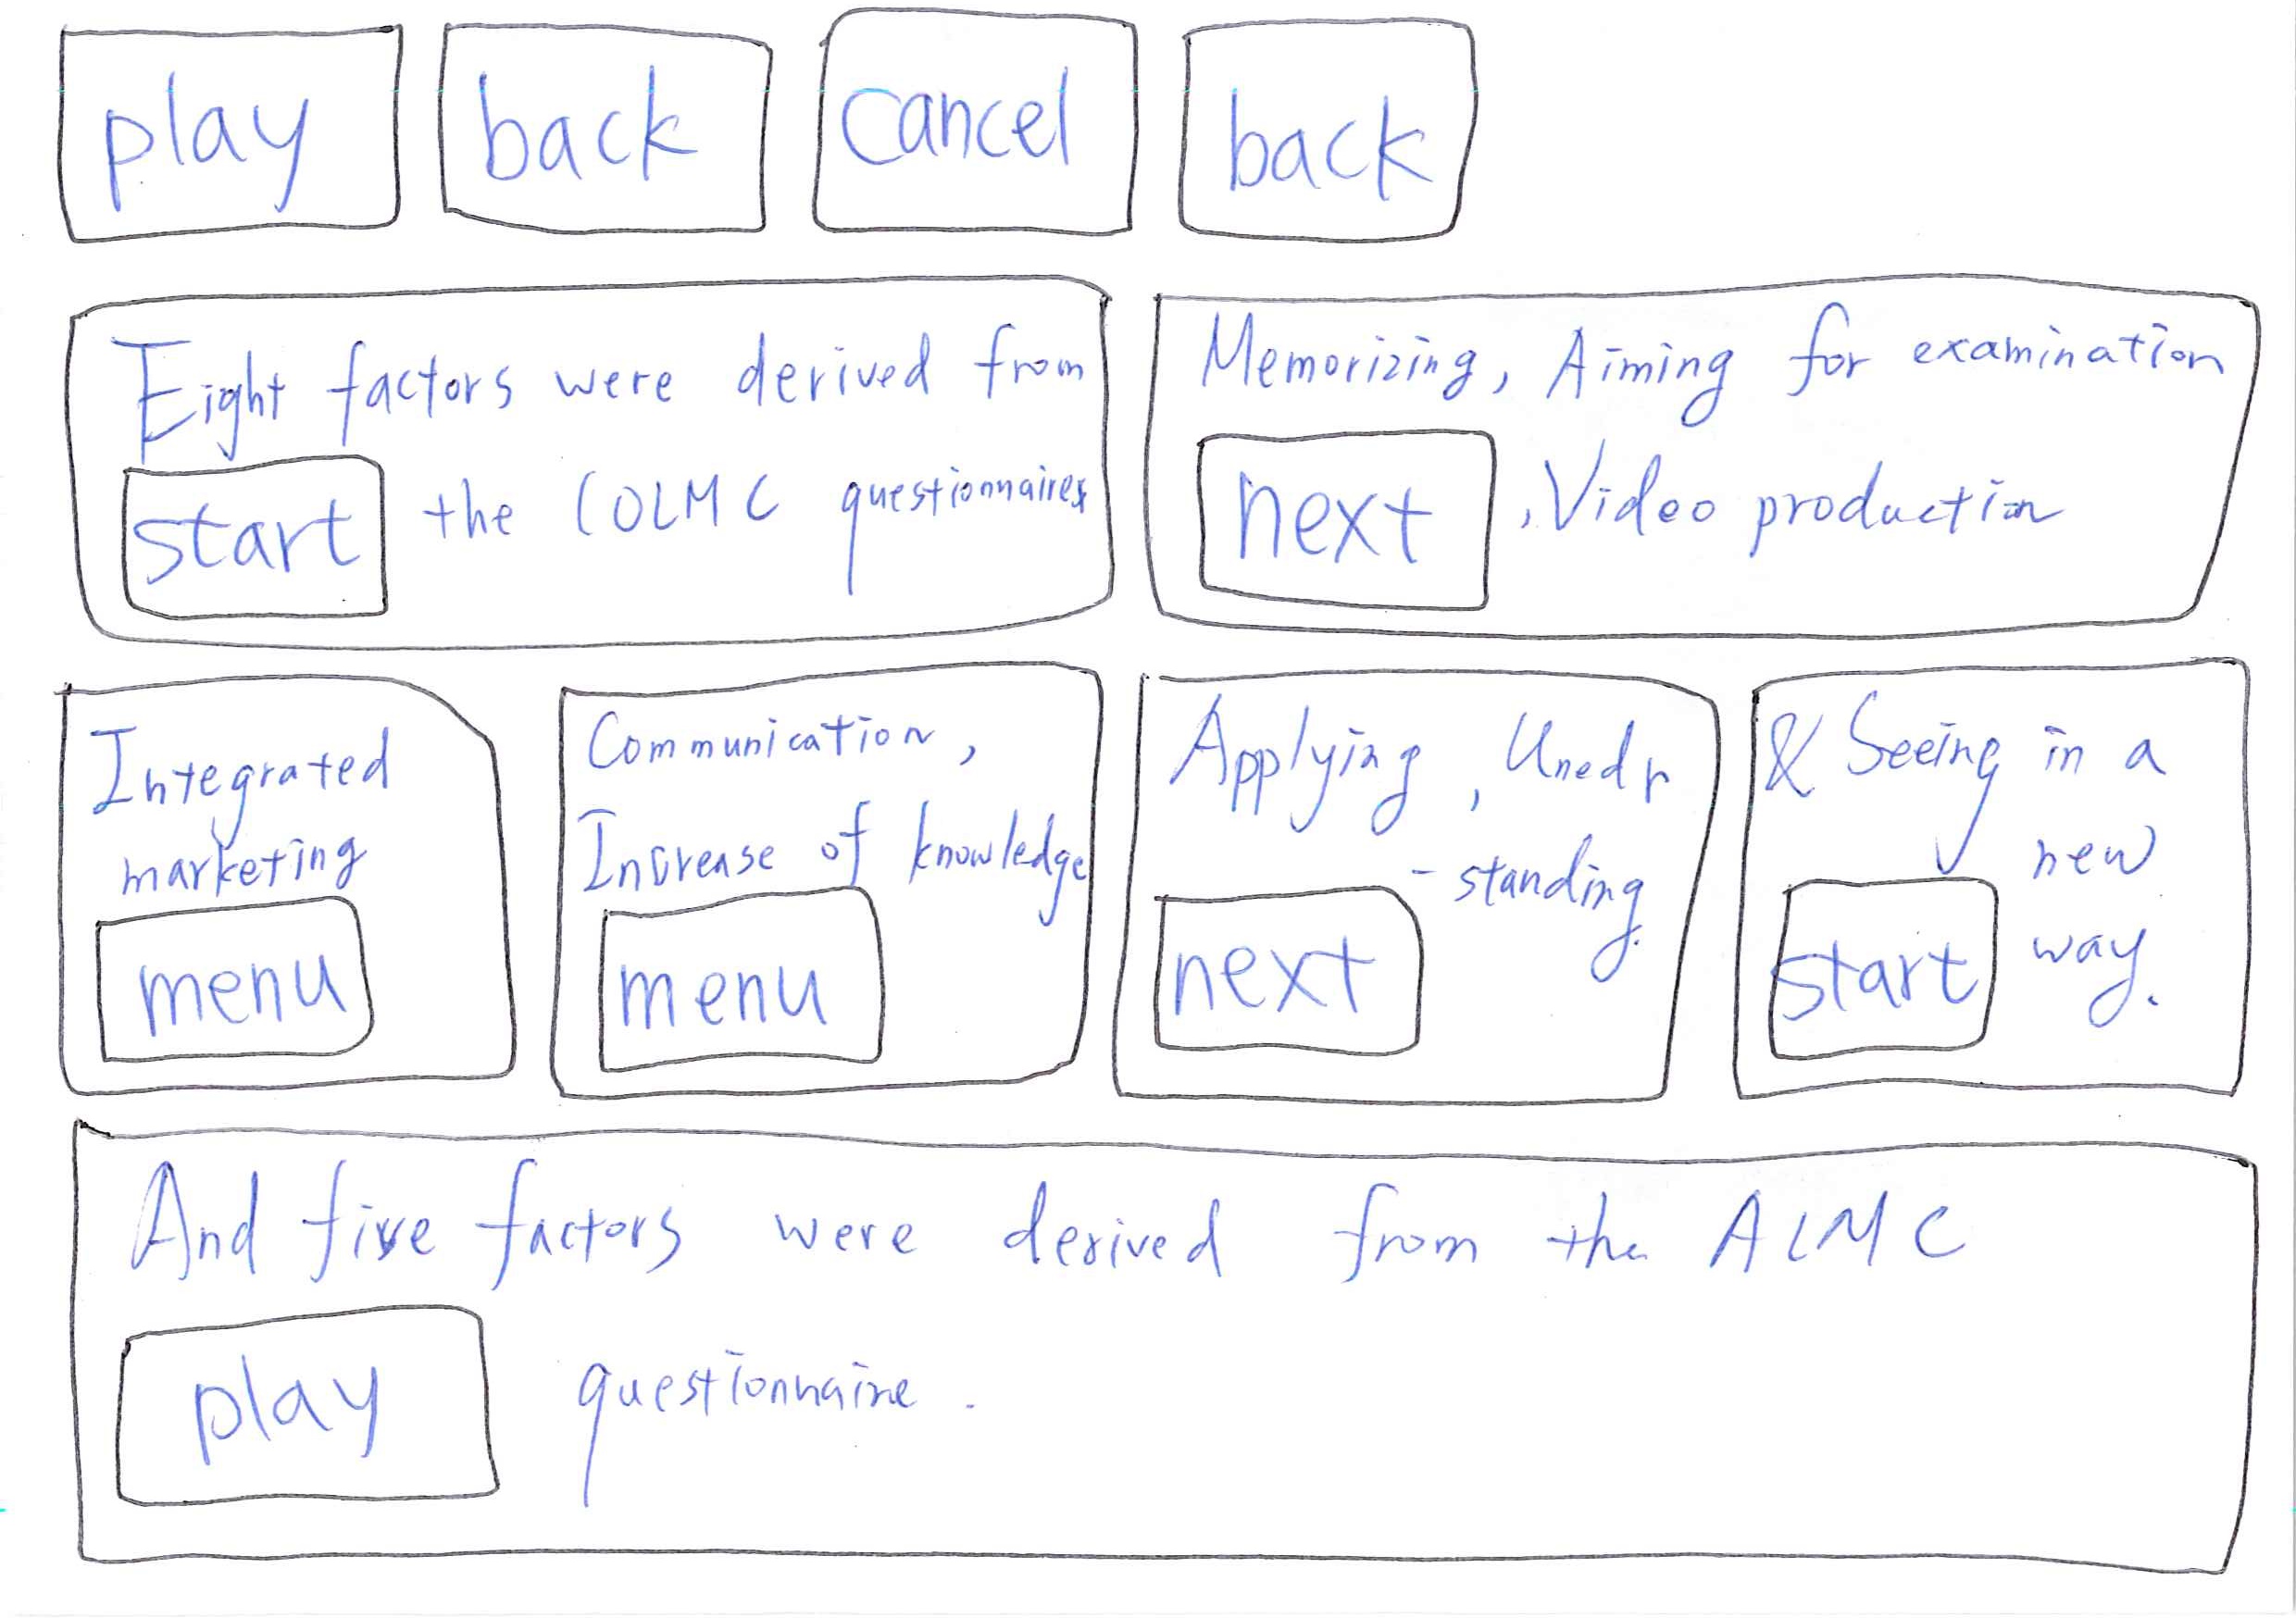 play back cancel back
Eight factors were derived from
start the COLMC questionnaires
Memorizing, Aiming for examination
next , Video production
Integrated
marketing
menu
Communication,
Increase of knowledge
menu
Applying, Unedr
-standing.
next
& Seeing in a
new
way.
start
And five factors were derived from the ALMC
play questionnaire.